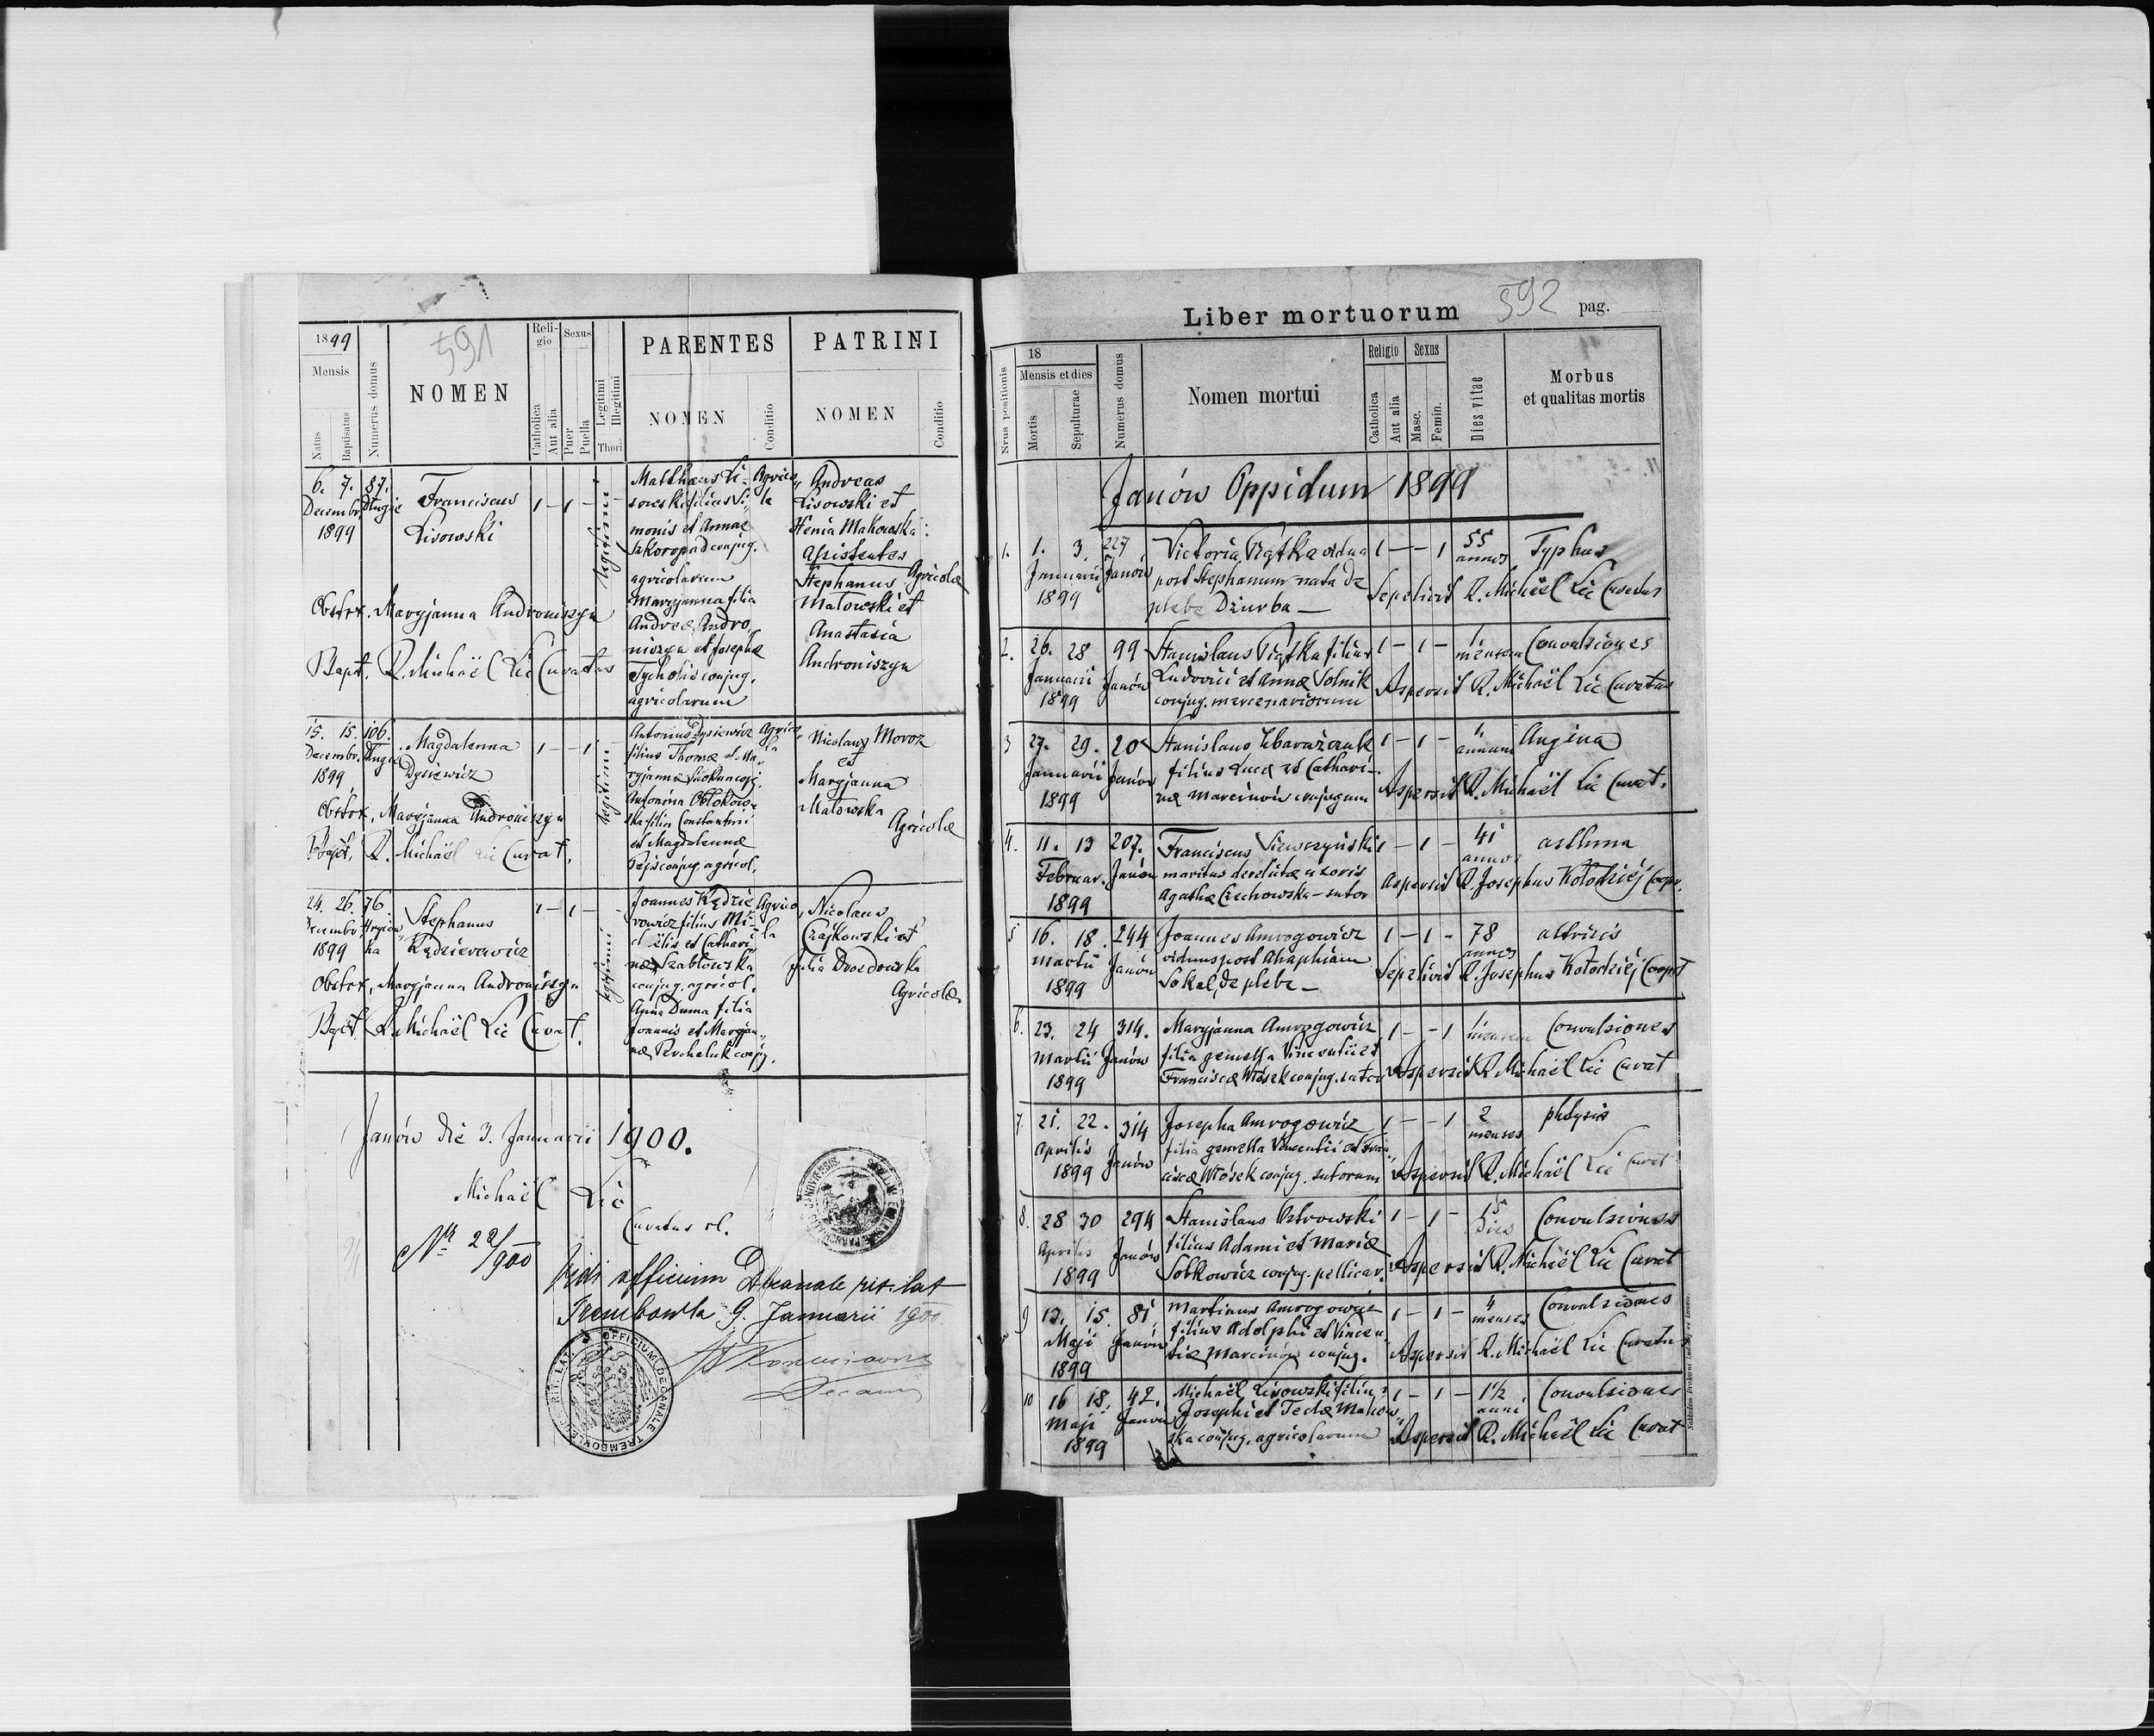 1899
Mensis
Natus
Baptisatus
Numerus domus
591
NOMEN
Religio
Catholica
Aut alia
Sexus
Puer
Puella
Legitimi
Illegitimi
Thori
PARENTES
NOMEN
Conditio
PATRINI
NOMEN
Conditio
6. 7. 87.
Decembr. Długie
1899
Franciscus
Lisowski
1 – 1 –
legitimi
Matthaeus Li-
sowski filius Si-
monis et Annae
Szkoropad conjug.
agricolarum
Maryjanna filia
Andreæ Andro-
niszyn et Josephæ
Tycholis conjug.
agricolarum
Agrico-
la
Andreas
Lisowski et
Xenia Makowska:
Assistentes
Stephanus Agricolæ
Matowski et
Anastasia
Androniszyn
Obstet. Maryjanna Androniszyn
Bapt. R. Michaël Lic Curatus
15. 15. 106.
Decembr.
1899
Magdalenna
Dysiewicz
1 – – 1
legitimi
Antonius Dysiewicz
filius Thomæ et Ma-
ryjannæ
Antonina Obłokow-
ska filia Constantini
et Magdalennæ
conjug. agricol.
Agrico-
la
Nicolaus Movoz
et
Maryjanna
Matowska
Agricolæ
Obstet. Maryjanna Androniszyn
Bapt. R. Michaël Lic Curat.
24. 26. 76
Decembr.
1899
Stephanus
Kędzierowicz
1 – 1 –
legitimi
Joannes Kędzie-
rowicz filius Mi-
chaëlis et Cathari-
næ Szabłowska
conjug. agricol.
Anna Duma filia
Joannis et Maryjan-
næ Perchaluk conjug.
Agrico-
la
Nicolaus
Czajkowski et
Julia Drozdowska
Agricolæ
Obstet. Maryjanna Androniszyn
Bapt. R. Michaël Lic Curat.
Janów die 3. Januarii 1900.
Michaël Lic
Curatus rl.
Nr 22/900
Vidi officium Decanale rit. lat
Trembowla 9. Januarii 1900
Decanus
OFFICIUM DECANALE TREMBOVLENSE RIT. LAT.
Liber mortuorum 592 pag.
Nrus positionis
18
Mensis et dies
Mortis
Sepulturae
Numerus domus
Nomen mortui
Religio
Catholica
Aut alia
Sexus
Masc.
Femin.
Dies vitae
Morbus
et qualitas mortis
Janów Oppidum 1899
1. 1. 3. 227 Victoria Piątka vidua 1 – – 1 55 Typhus
Januarii Janów post Stephanum nata de annos
1899 plebe Dziurba – Sepelivit R. Michaël Lic Curatus
2. 26. 28 99 Stanislaus Piątka filius 1 – 1 – 1. Convulsiones
Januarii Janów Ludovici et Annæ Solnik mensem
1899 conjug. mercenariorum Aspersit R. Michaël Lic Curatus
3 27. 29. 20 Stanislaus Zbarażczuk 1 – 1 – 1. Angina
Januarii Janów filius Lucæ et Cathari- annum
1899 næ Marcinów conjugum Aspersit R. Michaël Lic Curat.
4. 11. 13 207. Franciscus Siewczyński 1 – 1 – 41 asthma
Februar. Janów maritus derelictæ uxoris annos
1899 Agathæ Czechowska – sutor Aspersit R. Josephus Kołodziéj Coop.
5 16. 18. 244 Joannes Amrogowicz 1 – 1 – 78 attritis
Martii Janów viduus post Ahaphiam annos
1899 Sokal, de plebe – Sepelivit R. Josephus Kołodziéj Coop
6. 23. 24 314. Maryjanna Amrogowicz 1 – – 1 1. Convulsiones
Martii Janów filia gemella Vincentii et mensem
1899 Franciscæ Włósek conjug. sutor Aspersit R. Michaël Lic Curat
7. 21. 22. 314 Josepha Amrogowicz 1 – – 1 2 phtysis
Aprilis Janów filia gemella Vincentii et Fran- menses
1899 ciscæ Włósek conjug. sutorum Aspersit R. Michaël Lic Curat
8. 28 30 294 Stanislaus Ostrowski 1 – 1 – 15 Convulsiones
Aprilis Janów filius Adami et Mariæ dies
1899 Sobkowicz conjug. pellicar. Aspersit R. Michaël Lic Curat
9 13. 15. 81. Martinus Amrogowicz 1 – 1 – 4 Convulsiones
Maji Janów filius Adolphi et Vincen- menses
1899 tiæ Marcinów conjug. Aspersit R. Michaël Lic Curatus
10 16 18. 42. Michaël Lisowski filius 1 – 1 – 1½ Convulsiones
Maji Janów Josephi et Teclæ Makow- anni
1899 ska conjug. agricolarum Aspersit R. Michaël Lic Curat